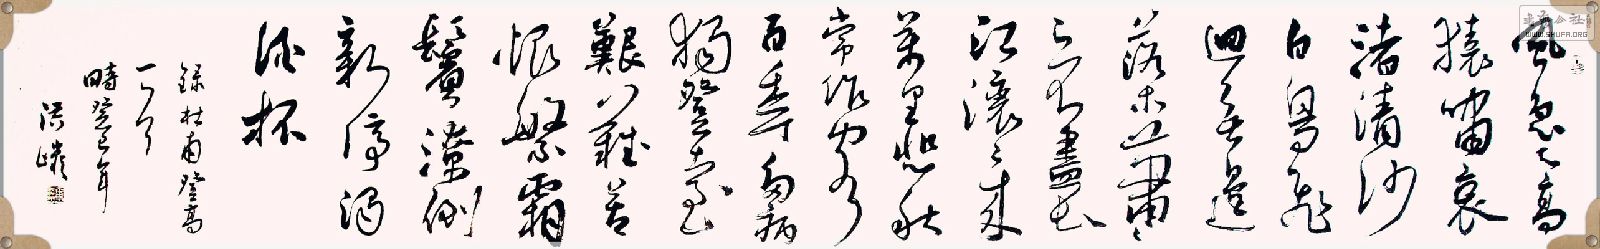 風急天高
猿嘯哀
渚清沙
白鳥飛
迴無邊
落木蕭〻
下不盡長
江滾〻來
萬里悲秋
常作客
百年多病
獨登臺
艱難苦
恨繁霜
鬢潦倒
新停濁
酒杯
錄杜甫登高
一首
時癸巳年
书法公社
WWW.SHUFA.ORG